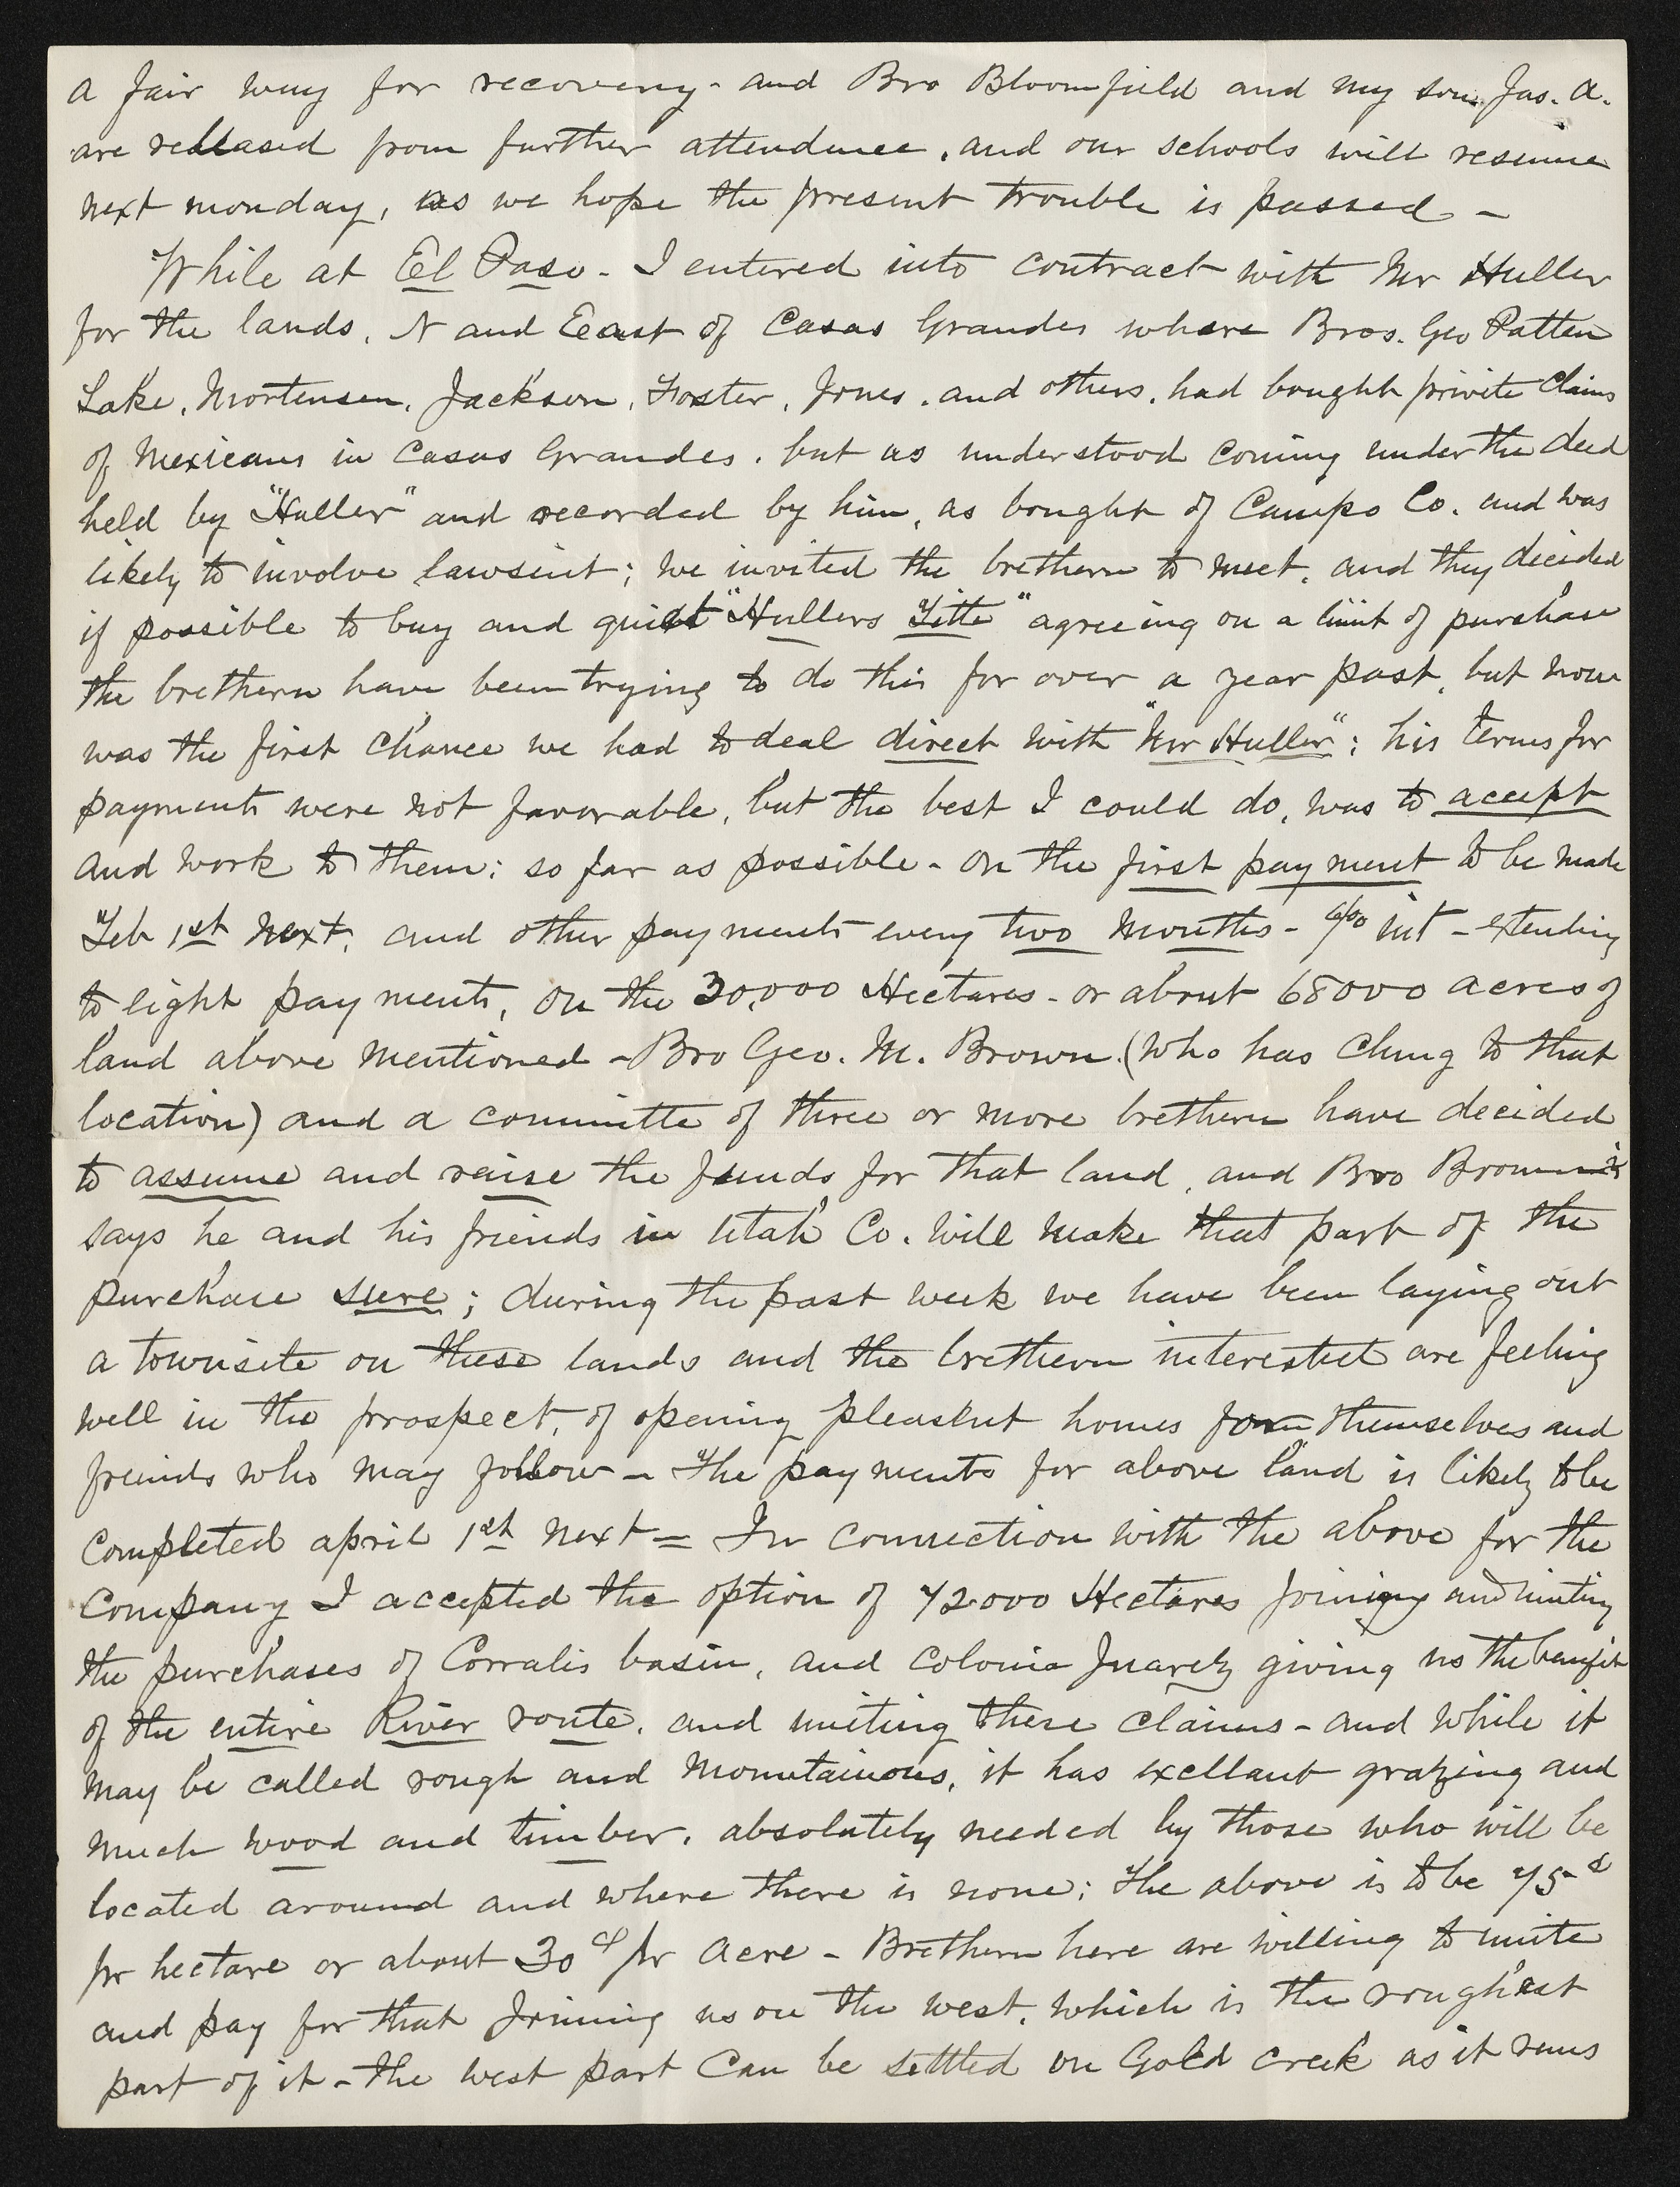 a fair way for recoverey - and Bro Bloomfield and my son Jas. A.
are released from further attendence, and our schools will resume
next monday, as we hope the present trouble is passed -
While at El Paso - I entered into contract with Mr Huller
for the lands, N and East of Casas Grandes where Bros. Geo Patten
Lake, Mortensen, Jackson, Foster, Jones, and others, had bought private Claims
of Mexicans in Casas Grandes, but as understood coming under the deed
held by "Huller" and recorded by him, as bought of Campo Co. and was
likely to involve lawsuit; we invited the brethern to meet, and they decided
if possible to buy and quiet "Hullers Title" agreeing on a limit of purchase
the brethern have been trying to do this for over a year past, but now
was the first chance we had to deal direct with "Mr Huller"; his terms for
payments were not favorable, but the best I could do, was to accept
and work to them; so far as possible - on the first payment to be made
Feb 1st next, and other payments every two months - 6/00 int - extending
to eight payments, on the 30,000 Hectares - or about 68000 acres of
land above mentioned - Bro Geo. M. Brown (who has clung to that
location) and a committe of three or more brethern have decided
to assume and raise the funds for that land, and Bro Brown
says he and his friends in Utah Co. will make that part of the
purchase sure; during the past week we have been laying out
a townsite on these lands and the brethern interested are feeling
well in the prospect, of opening pleasent homes for themselves and
freinds who may follow - The payments for above land is likely to be
completed april 1st next = In connection with the above for the
Company I accepted the option of 72000 Hectares joining and uniting
the purchases of Corralis basin, and Colonia Juarez giving us the benefit
of the entire River route, and uniting these claims - and while it
may be called rough and mountainous, it has excellant grazing and
much wood and timber, absolutely needed by those who will be
located around and where there is none; the above is to be 75 c
pr hectare or about 30 cts pr acre - Brethern here are willing to unite
and pay for that Joining us on the west, which is the roughest
part of it - the west part can be settled on Gold creek as it runs